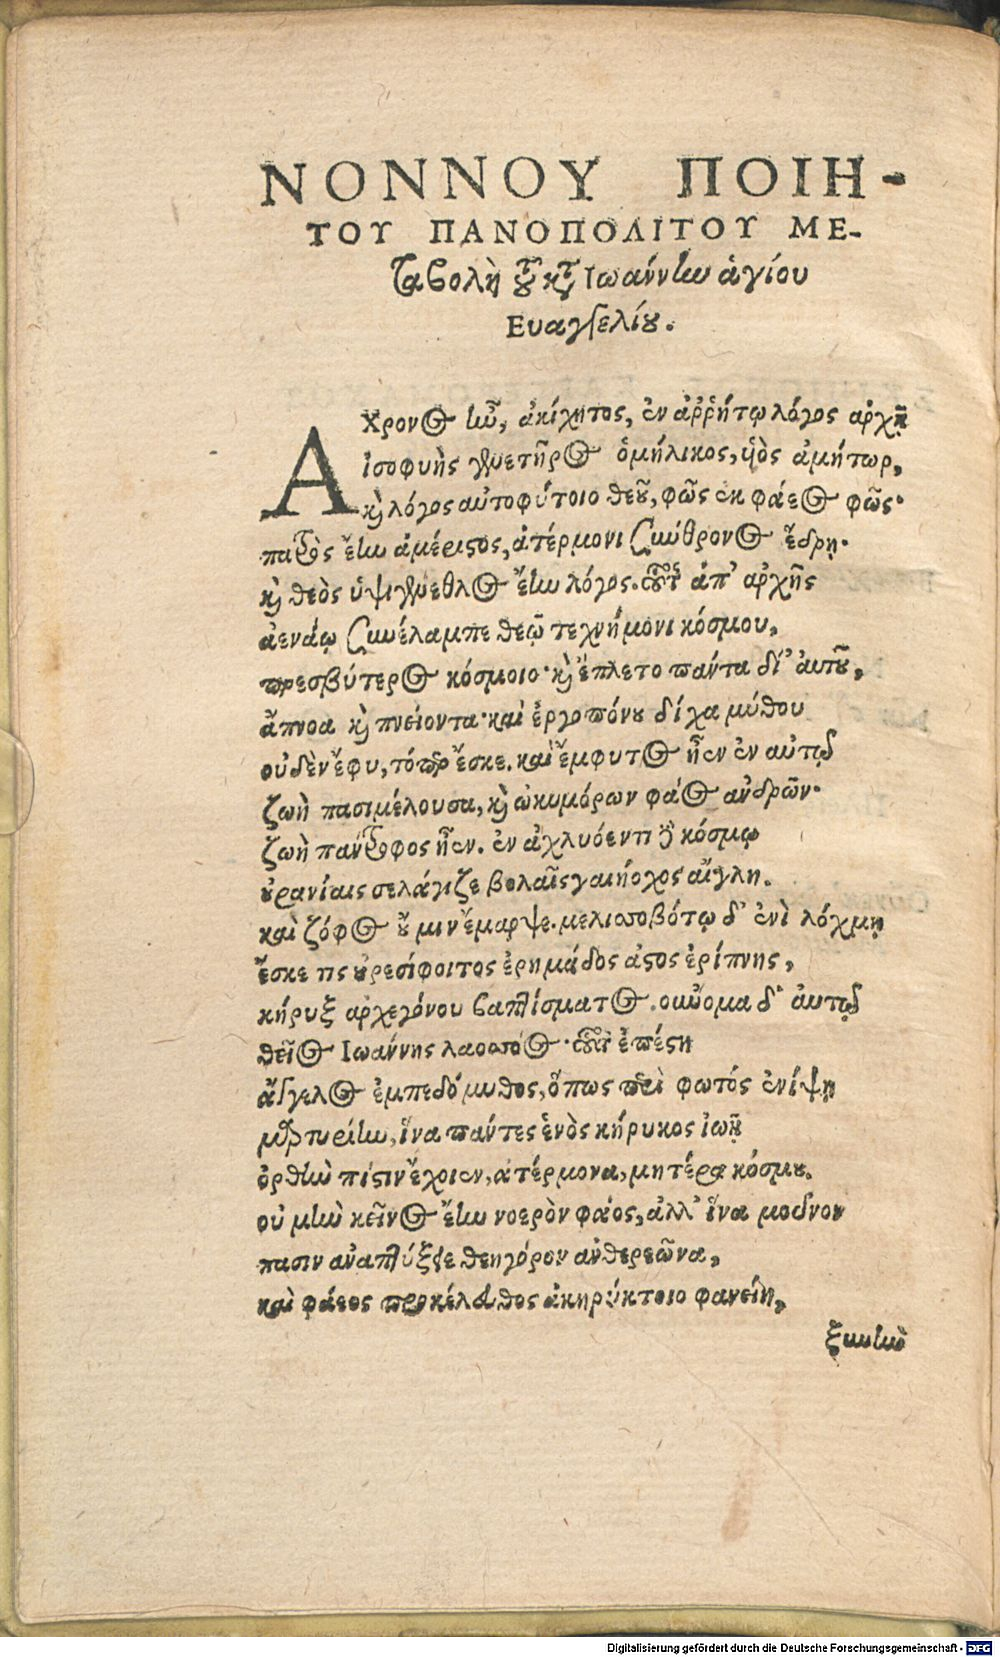 ΝΟΝΝΟΥ ΠΟΙΗ-
ΤΟΥ ΠΑΝΟΠΟΛΙΤΟΥ ΜΕ-
ταβολὴ τοῦ κτ Ἰωάννην ἁγίου
Ευαγγελίου.
ΑΧρονος ἦν, ἀκίχητος, ἐν ἀῤῥήτῳ λόγος ἀρχῇ
ἰσοφυὴς γενετῆρος ὁμήλικος, υἱὸς ἀμήτωρ,
καὶ λόγος αὐτοφύτοιο θεοῦ, φῶς ἐκ φάεος φῶς·
πατρὸς ἔην ἀμέριστος, ἀτέρμονι σύνθρονος ἕδρῃ.
καὶ θεὸς ὑψιγένεθλος ἔην λόγος. οὗτος ἀπ' ἀρχῆς
ἀενάῳ συνέλαμπε θεῷ τεχνήμονι κόσμου,
πρεσβύτερος κόσμοιο· καὶ ἔπλετο πάντα δι' αὐτοῦ,
ἄπνοα καὶ πνείοντα· καὶ ἐργοπόνου δίχα μύθου
οὐδὲν ἔφυ, τόπερ ἔσκε. καὶ ἔμφυτος ἦεν ἐν αὐτῷ
ζωὴ πασιμέλουσα, καὶ ὠκυμόρων φάος ἀνδρῶν·
ζωὴ πάντροφος ἦεν. ἐν ἀχλυόεντι δὲ κόσμῳ
οὐρανίαις σελάγιζε βολαῖς γαιήοχος αἴγλη.
καὶ ζόφος οὔ μιν ἔμαρψε. μελισσοβότῳ δ' ἐνὶ λόχμῃ
ἔσκε τις οὐρεσίφοιτος ἐρημάδος ἀστὸς ἐρίπνης,
κήρυξ ἀρχεγόνου βαπτίσματος. οὔνομα δ' αὐτῷ
θεῖος Ἰωάννης λαοσσόος· οὗτος ἐπέστη
ἄγγελος ἐμπεδόμυθος, ὅπως περὶ φωτός ἐνίψῃ
μαρτυρίην, ἵνα πάντες ἑνὸς κήρυκος ἰωῇ
ὀρθὴν πίστιν ἔχοιεν, ἀτέρμονα, μητέρα κόσμου.
οὐ μὴν κεῖνος ἔην νοερὸν φάος, ἀλλ' ἵνα μοῦνον
πασιν ἀναπτύξειε θεηγόρον ἀνθερεῶνα,
καὶ φάεος προκέλευθος ἀκηρύκτοιο φανείη,
ξυνὴν
Digitalisierung gefördert durch die Deutsche Forschungsgemeinschaft - DFG